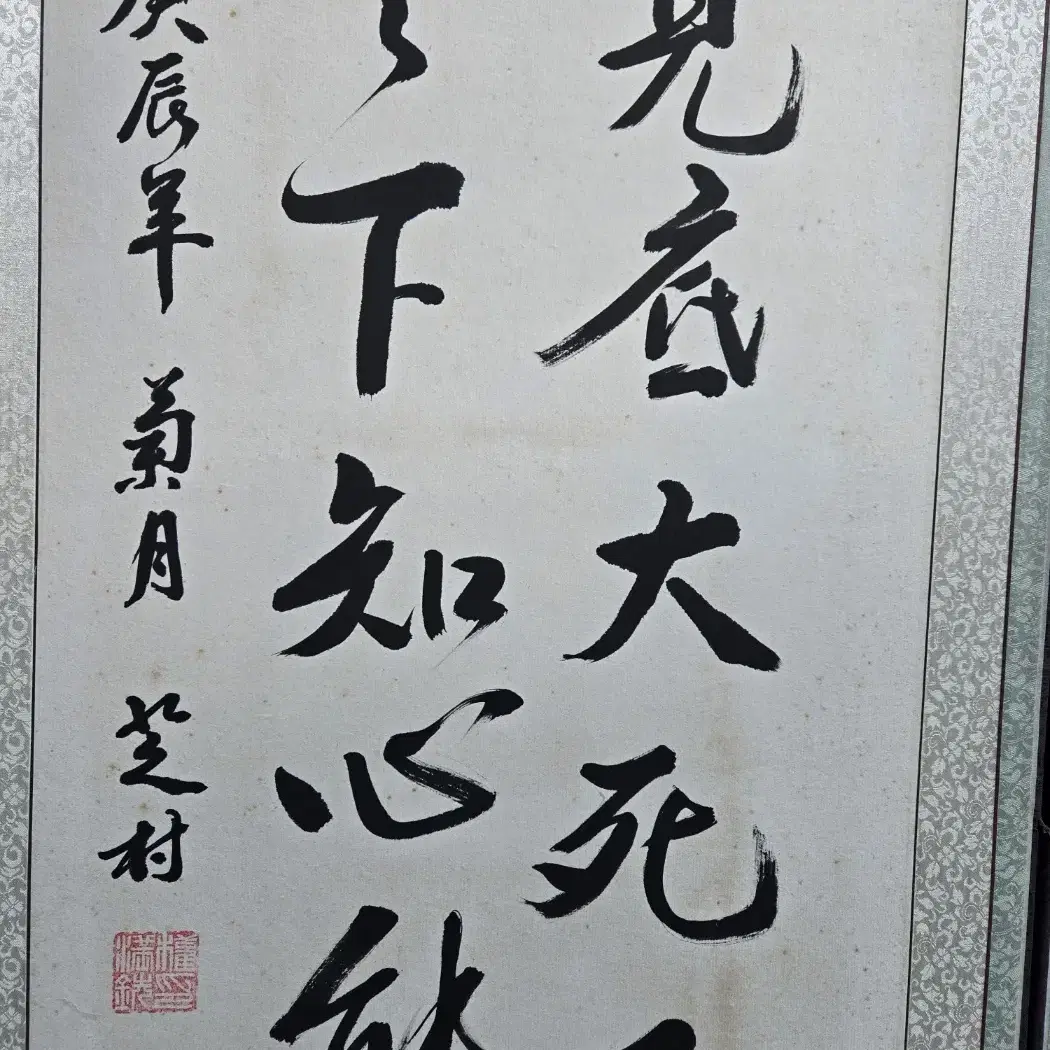 見底大死
下知心
庚辰年 菊月 芝村